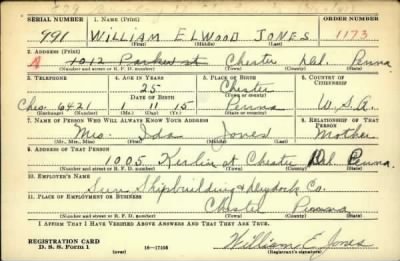 SERIAL NUMBER 1. NAME (Print) ORDER NUMBER
991 WILLIAM ELWOOD JONES 1173
(First) (Middle) (Last)
2. ADDRESS (Print)
1012 Parker st Chester Del. Penna
(Number and street or R. F. D. number) (Town) (County) (State)
3. TELEPHONE 4. AGE IN YEARS 5. PLACE OF BIRTH 6. COUNTRY OF CITIZENSHIP
25 Chester
DATE OF BIRTH (Town or county)
Che. 6421 1 1 15 Penna U.S.A.
(Exchange) (Number) (Mo.) (Day) (Yr.) (State or country)
7. NAME OF PERSON WHO WILL ALWAYS KNOW YOUR ADDRESS 8. RELATIONSHIP OF THAT PERSON
Mrs Ida Jones Mother
(Mr., Mrs., Miss) (First) (Middle) (Last)
9. ADDRESS OF THAT PERSON
1005 Kerlin st Chester Del. Penna.
(Number and street or R. F. D. number) (Town) (County) (State)
10. EMPLOYER'S NAME
Sun Shipbuilding & Drydock Co.
11. PLACE OF EMPLOYMENT OR BUSINESS
Chester Penna
(Number and street or R. F. D. number) (Town) (County) (State)
I AFFIRM THAT I HAVE VERIFIED ABOVE ANSWERS AND THAT THEY ARE TRUE.
REGISTRATION CARD
D. S. S. Form 1 (over) 16—17105 William E. Jones
(Registrant's signature)